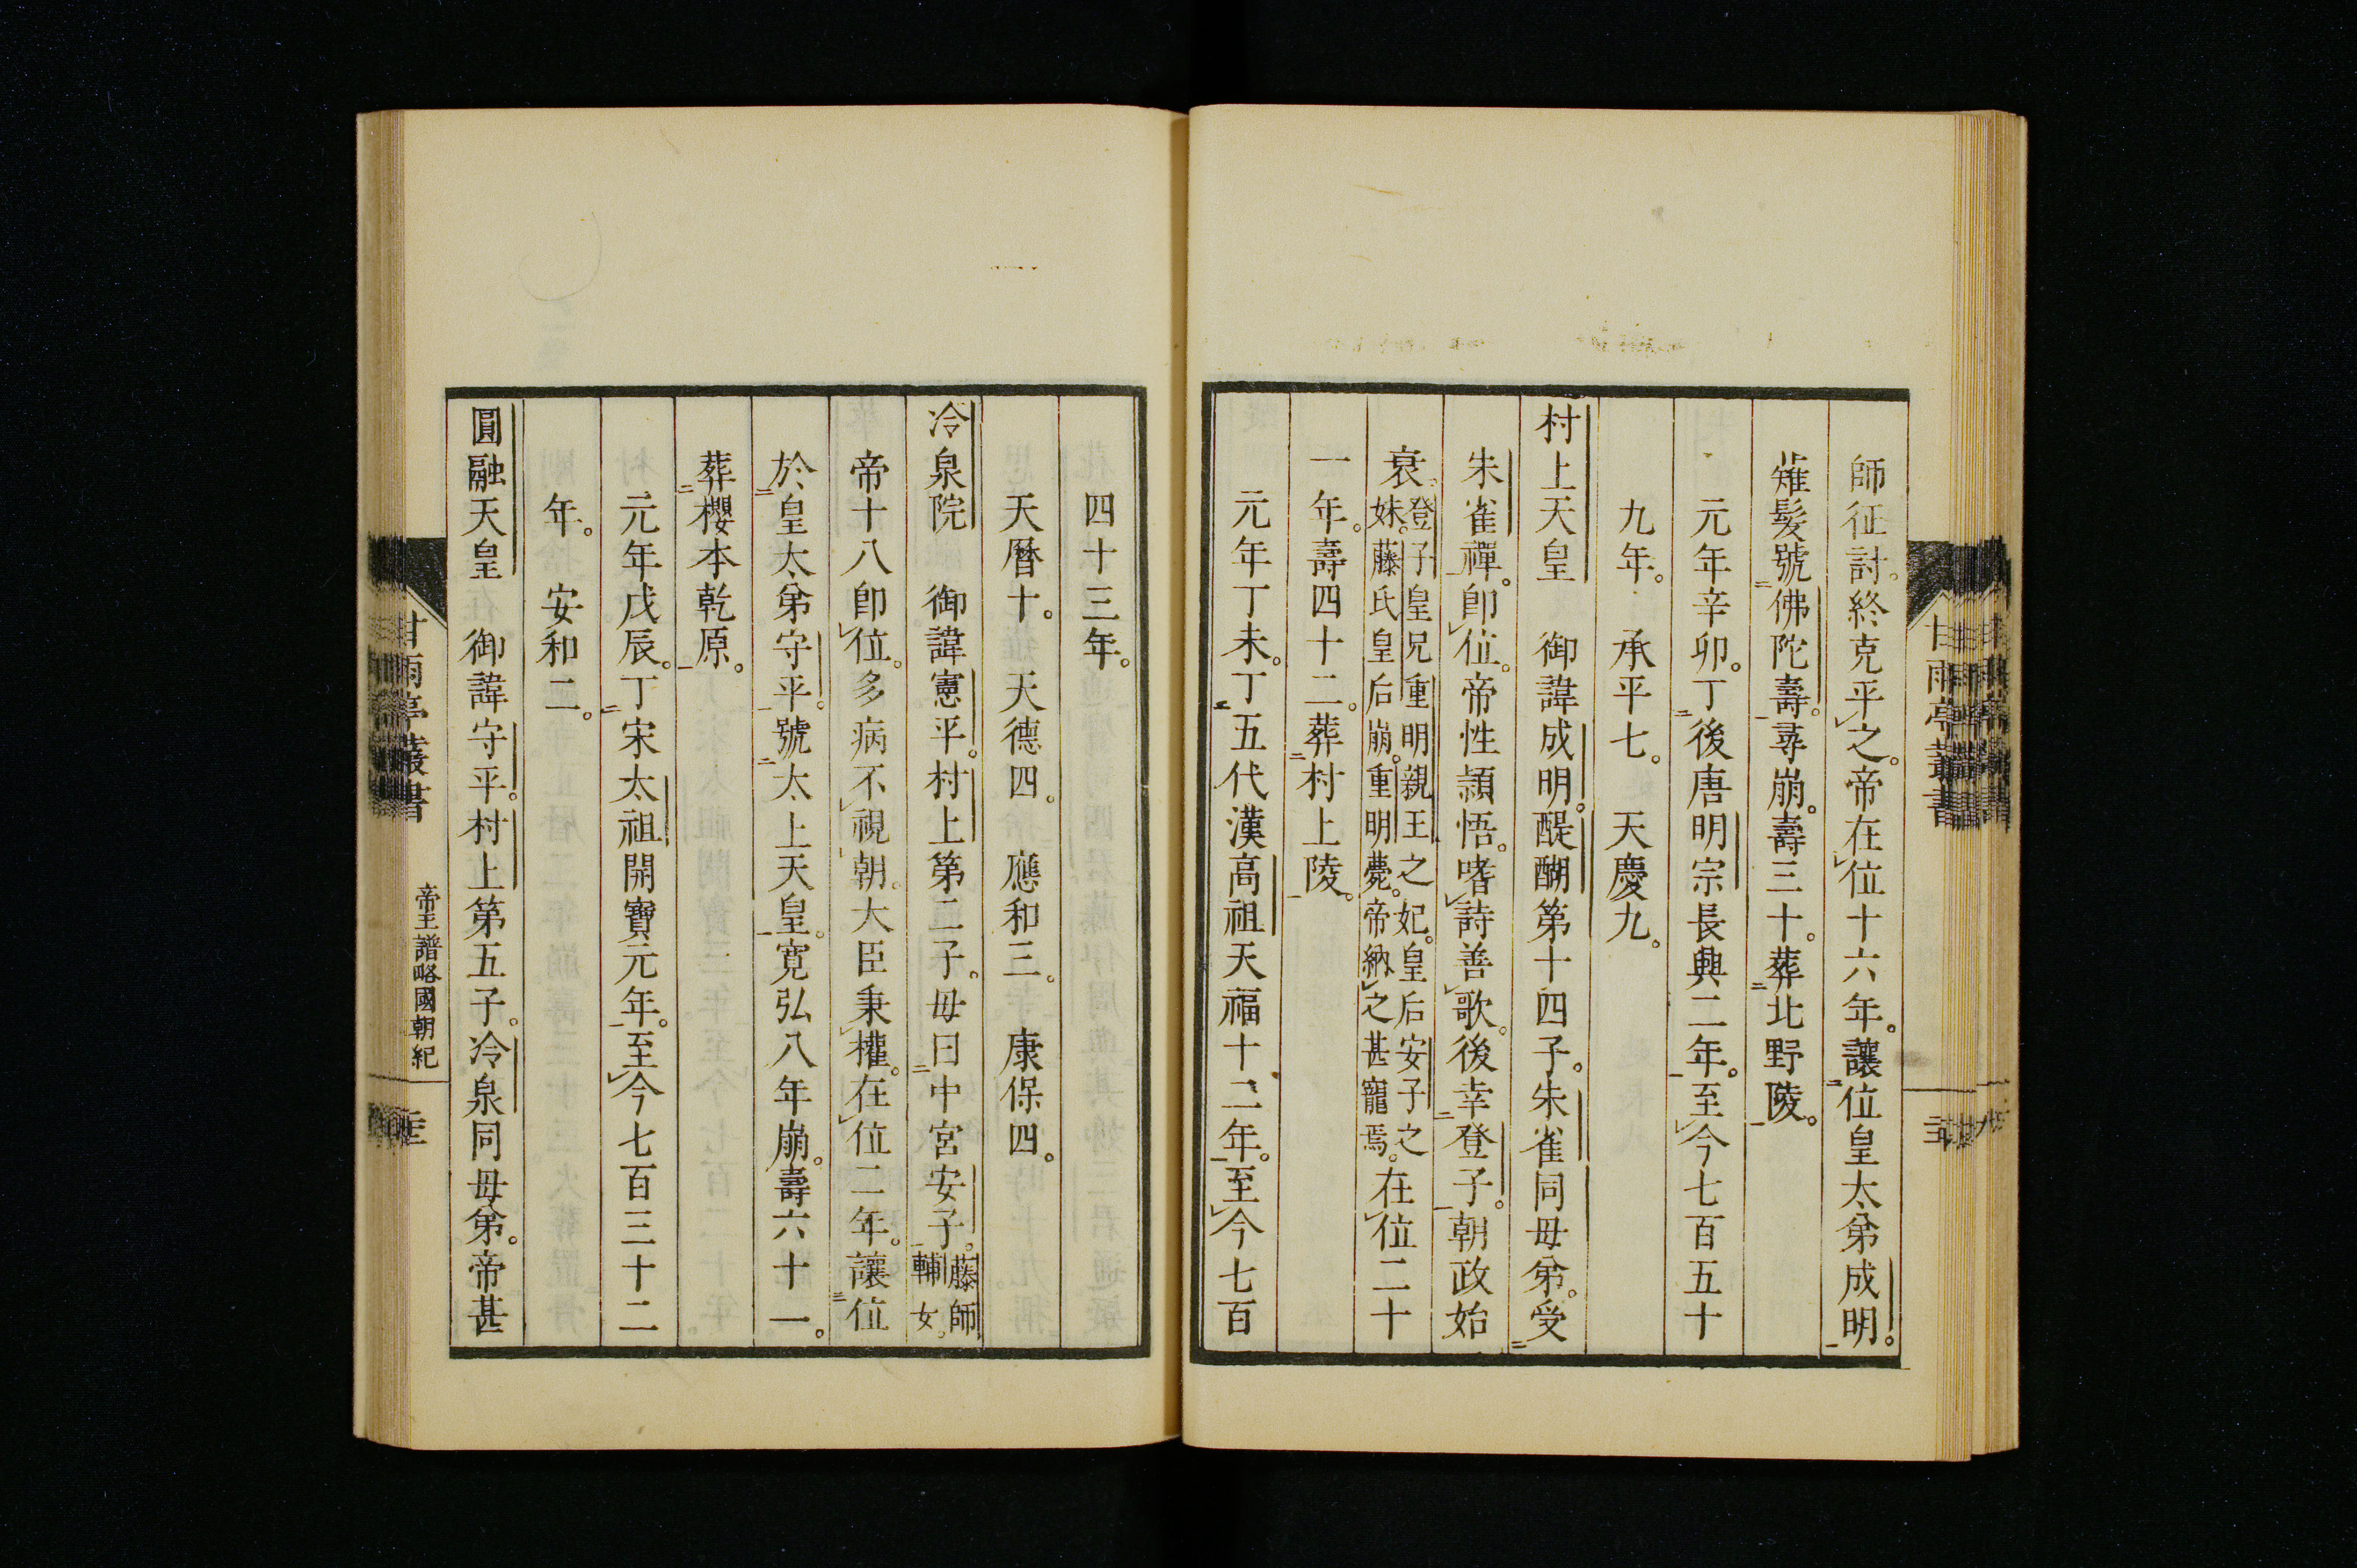 師征討。終克平之。帝在位十六年。讓位皇太弟成明。
薙髮號佛陀壽。尋崩。壽三十。葬北野陵。
元年辛卯。丁後唐明宗長興二年。至今七百五十
九年。 承平七。 天慶九。
村上天皇 御諱成明。醍醐第十四子。朱雀同母弟。受
朱雀禪。卽位。帝性穎悟。嗜詩善歌。後幸登子。朝政始
衰。登子皇兄重明親王之妃。皇后安子之
妹。藤氏皇后崩。重明薨。帝納之甚寵焉。在位二十
一年。壽四十二。葬村上陵。
元年丁未。丁五代漢高祖天福十二年。至今七百
四十三年。
天曆十。 天德四。 應和三。 康保四。
冷泉院 御諱憲平。村上第二子。母曰中宮安子。藤師
輔女。
帝十八卽位。多病不視朝。大臣秉權。在位二年。讓位
於皇太弟守平。號太上天皇。寬弘八年崩。壽六十一。
葬櫻本乾原。
元年戊辰。丁宋太祖開寶元年。至今七百三十二
年。 安和二。
圓融天皇 御諱守平。村上第五子。冷泉同母弟。帝甚
甘雨亭叢書
帝王譜略國朝紀
甘雨亭叢書